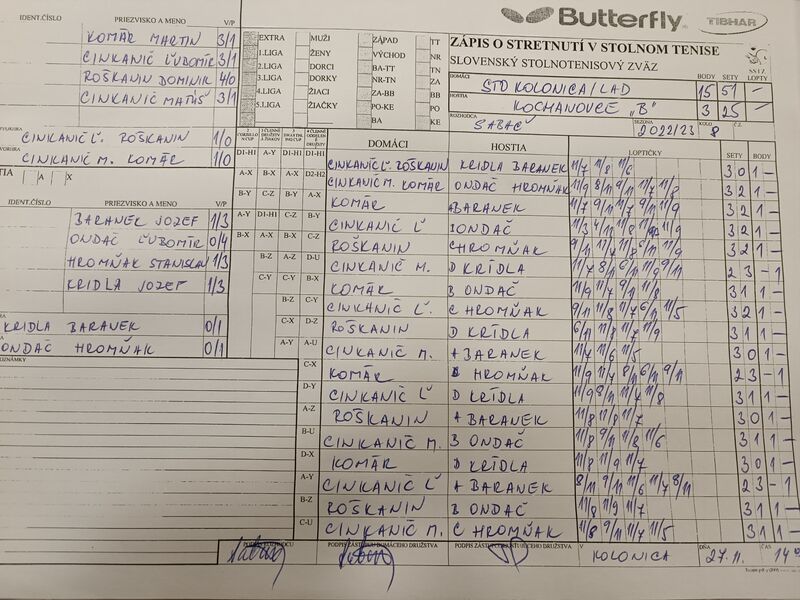 Butterfly
TIBHAR
IDENT.ČÍSLO PRIEZVISKO A MENO V/P
KOMÁR MARTIN 3/1
CINKANIČ ĽUBOMÍR 3/1
ROŠKANIN DOMINIK 4/0
CINKANIČ MATÚŠ 3/1
CINKANIČ Ľ. ROŠKANIN 1/0
CINKANIČ M. KOMÁR 1/0
A X
IDENT.ČÍSLO PRIEZVISKO A MENO V/P
BARANEK JOZEF 1/3
ONDAČ ĽUBOMÍR 0/4
HROMŇAK STANISLAV 1/3
KRIDLA JOZEF 1/3
KRIDLA BARANEK 0/1
ONDAČ HROMŇAK 0/1
EXTRA MUŽI ZÁPAD TT
1.LIGA ŽENY VÝCHOD NR
2.LIGA DORCI BA-TT TN
3.LIGA DORKY NR-TN ZA
4.LIGA ŽIACI ZA-BB BB
5.LIGA ŽIAČKY PO-KE PO
BA KE
ZÁPIS O STRETNUTÍ V STOLNOM TENISE
SLOVENSKÝ STOLNOTENISOVÝ ZVÄZ
DOMÁCI STO KOLONICA/LAD BODY 15 SETY 51 LOPTY –
HOSTIA KOCHANOVCE "B" 3 25 –
ROZHODCA SABAČ SEZÓNA 2022/23 KOLO 8 Č.Z.
DOMÁCI HOSTIA LOPTIČKY SETY BODY
CINKANIČ Ľ. ROŠKANIN KRIDLA BARANEK 11/7 11/8 11/6 3 0 1 –
CINKANIČ M. KOMÁR ONDAČ HROMŇAK 11/9 8/11 9/11 11/7 11/8 3 2 1 –
KOMÁR A BARANEK 11/7 9/11 11/7 9/11 11/9 3 2 1 –
CINKANIČ Ľ B ONDAČ 11/3 4/11 11/8 11/9 3 2 1 –
ROŠKANIN C HROMŇAK 9/11 11/7 11/8 6/11 11/9 3 2 1 –
CINKANIČ M. D KRÍDLA 11/7 8/11 6/11 11/9 9/11 2 3 – 1
KOMÁR B ONDAČ 11/9 11/7 9/11 11/8 3 1 1 –
CINKANIČ Ľ. C HROMŇAK 9/11 11/8 11/7 6/11 11/5 3 2 1 –
ROŠKANIN D KRÍDLA 6/11 11/8 11/7 11/9 3 1 1 –
CINKANIČ M. A BARANEK 11/7 11/6 11/5 3 0 1 –
KOMÁR HROMŇAK 11/9 11/7 8/11 6/11 9/11 2 3 – 1
CINKANIČ Ľ D KRÍDLA 11/9 8/11 11/7 11/8 3 1 1 –
ROŠKANIN A BARANEK 11/8 11/8 11/7 3 0 1 –
CINKANIČ M. B ONDAČ 11/8 9/11 11/8 11/6 3 1 1 –
KOMÁR D KRÍDLA 11/8 11/9 11/7 3 0 1 –
CINKANIČ Ľ A BARANEK 8/11 9/11 11/6 11/7 8/11 2 3 – 1
ROŠKANIN B ONDAČ 11/8 11/9 11/7 3 1 1 –
CINKANIČ M. C HROMŇAK 11/8 9/11 11/7 11/5 3 1 1 –
V KOLONICA DŇA 27.11. ČAS